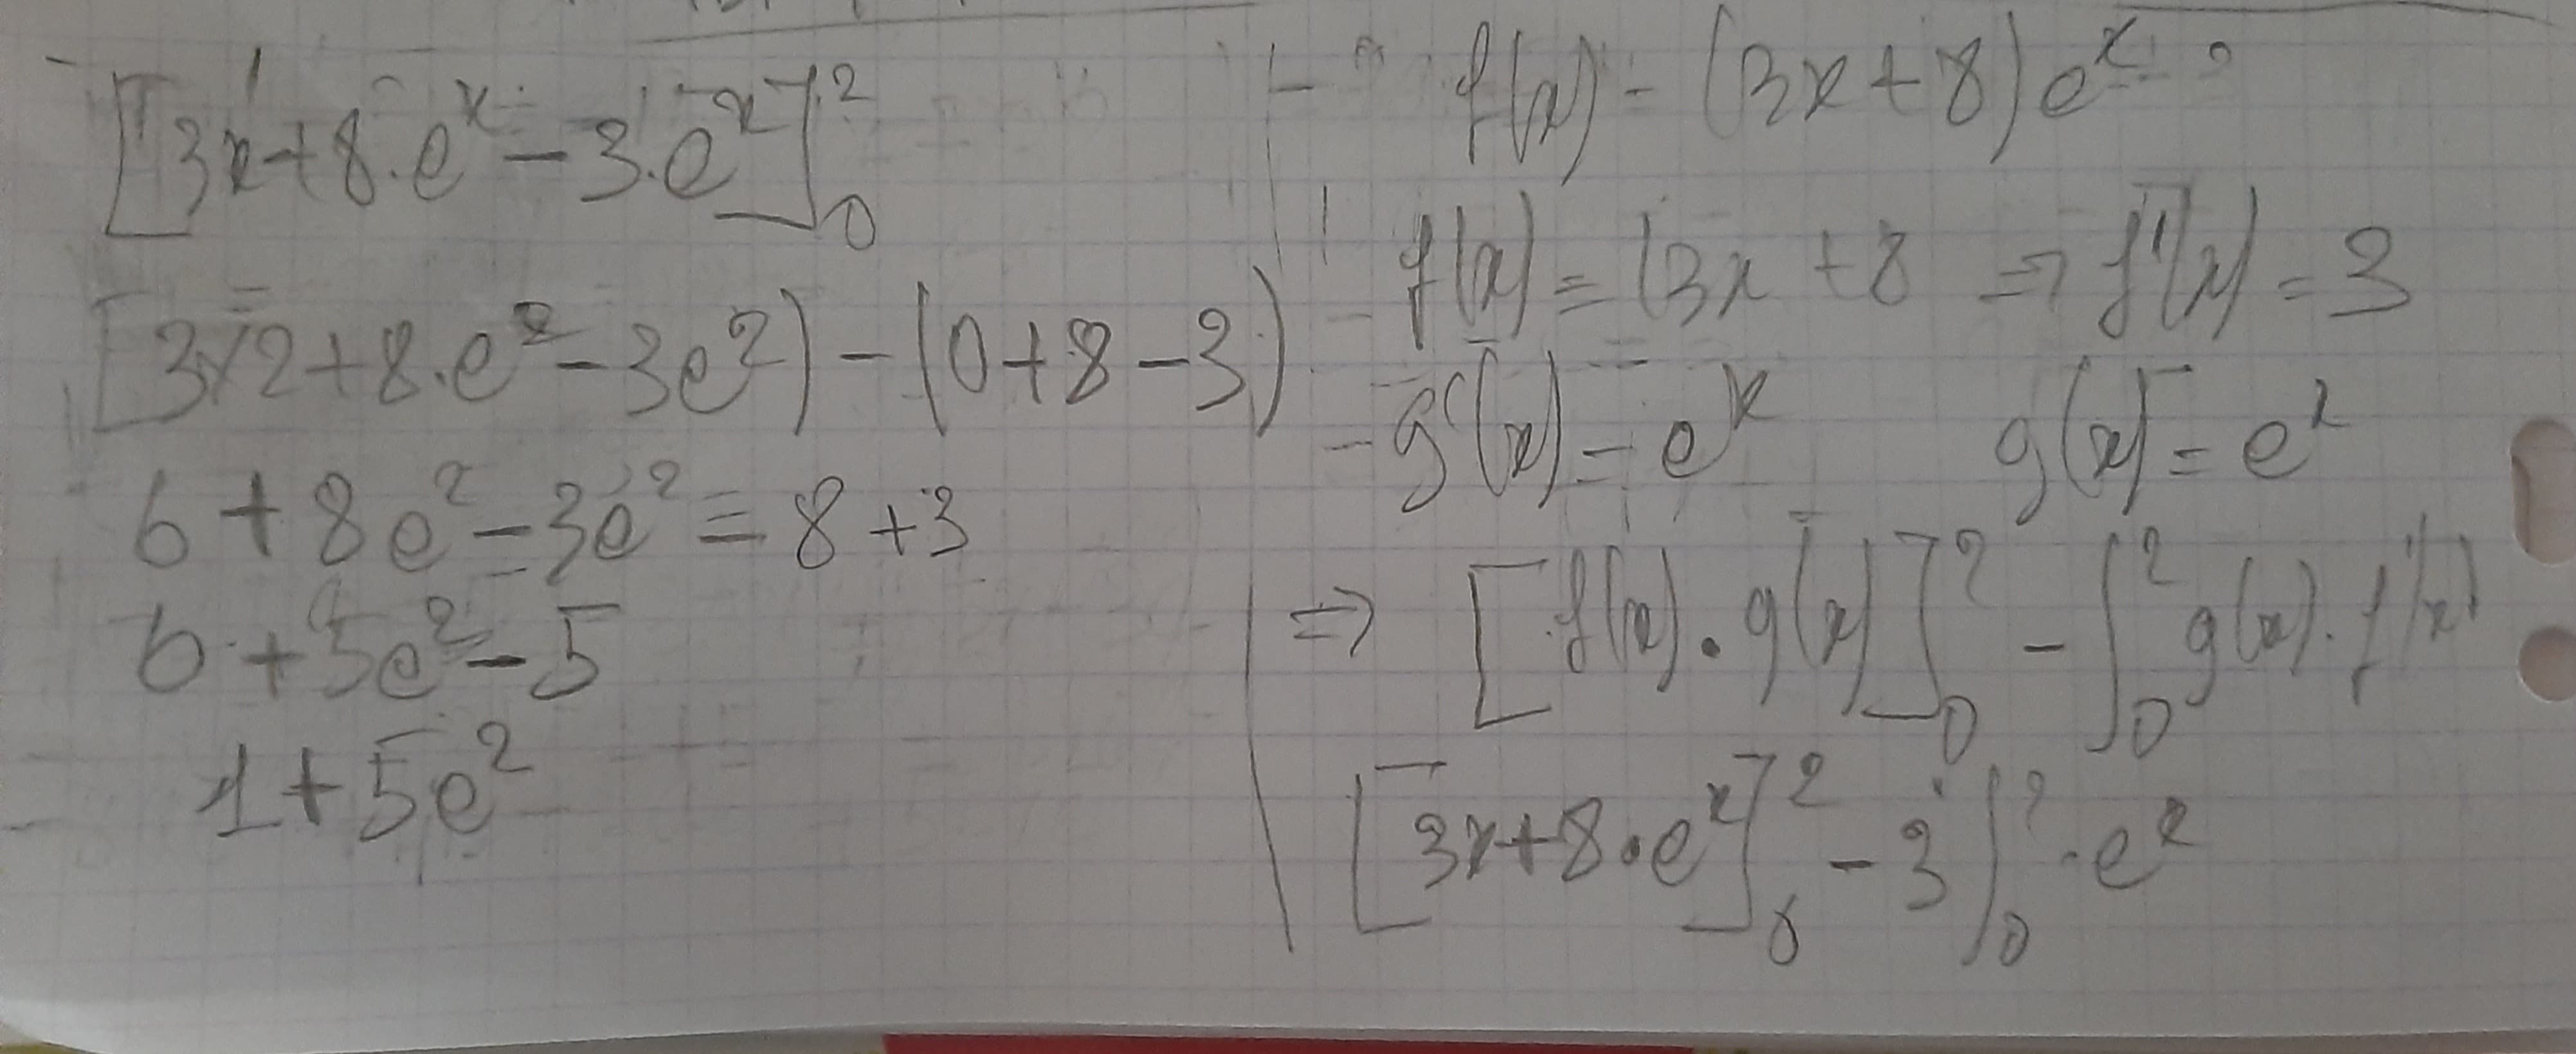 [3x+8.e^x-3.e^x]_0^2
[3×2+8.e^2-3e^2)-(0+8-3)
6+8e^2-3e^2=8+3
6+5e^2-5
1+5e^2
f(x)=(3x+8)e^x
f(x)=(3x+8 ⇒ f'(x)=3
-g'(x)=e^x g(x)=e^x
⇒ [f(x).g(x)]_0^2-∫_0^2 g(x).f'(x)
[3x+8.e^x]_0^2-3∫_0^2.e^x